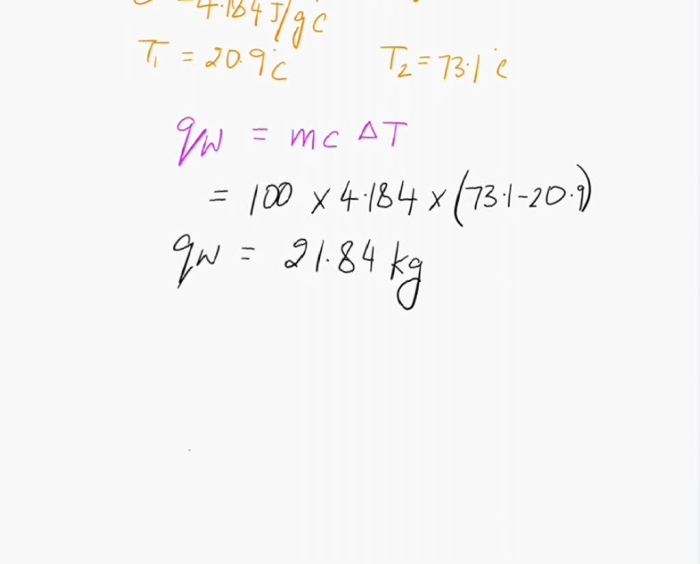 = 4.184 J/g c
T₁ = 20.9°c T₂ = 73.1°c
qw = mc ΔT
= 100 × 4.184 × (73.1-20.9)
qw = 21.84 kg